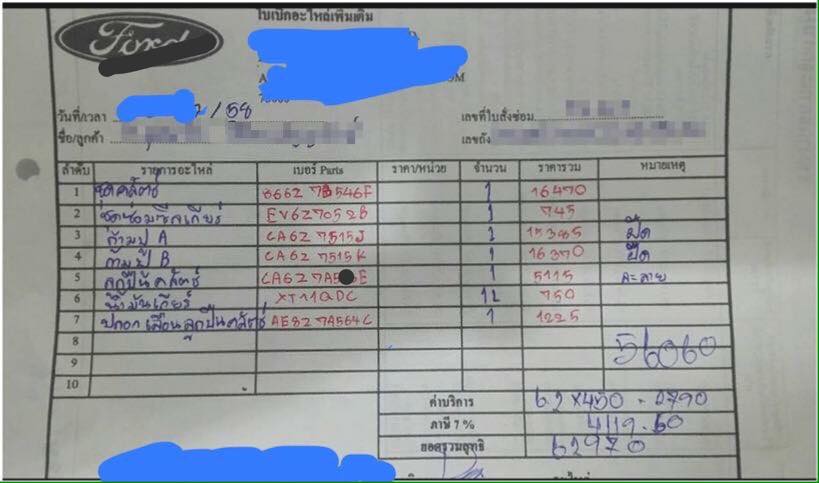 Ford
ใบเบิกอะไหล่เพิ่มเติม
วันที่/เวลา / 58
เลขที่ใบสั่งซ่อม
ชื่อ/ลูกค้า
เลขถัง
ลำดับ รายการอะไหล่ เบอร์ Parts ราคา/หน่วย จำนวน ราคารวม หมายเหตุ
1 ชุดคลัตช์ 8662 7B546F 1 16470
2 ชุดซ่อมซีลเกียร์ EV627052B 1 745
3 ก้ามปู A CA627515J 1 15385 ฝืด
4 ก้ามปู B CA627515K 1 16370 ฝืด
5 ลูกปืนคลัตช์ 1 5115 ละลาย
6 น้ำมันเกียร์ XT11QDC 1L 750
7 ปลอกเลื่อนลูกปืนคลัตช์ AE827A564C 1 1225
8 56060
9
10
ค่าบริการ 6.2 x 450 - 2790
ภาษี 7 % 4119.50
ยอดรวมสุทธิ 62970